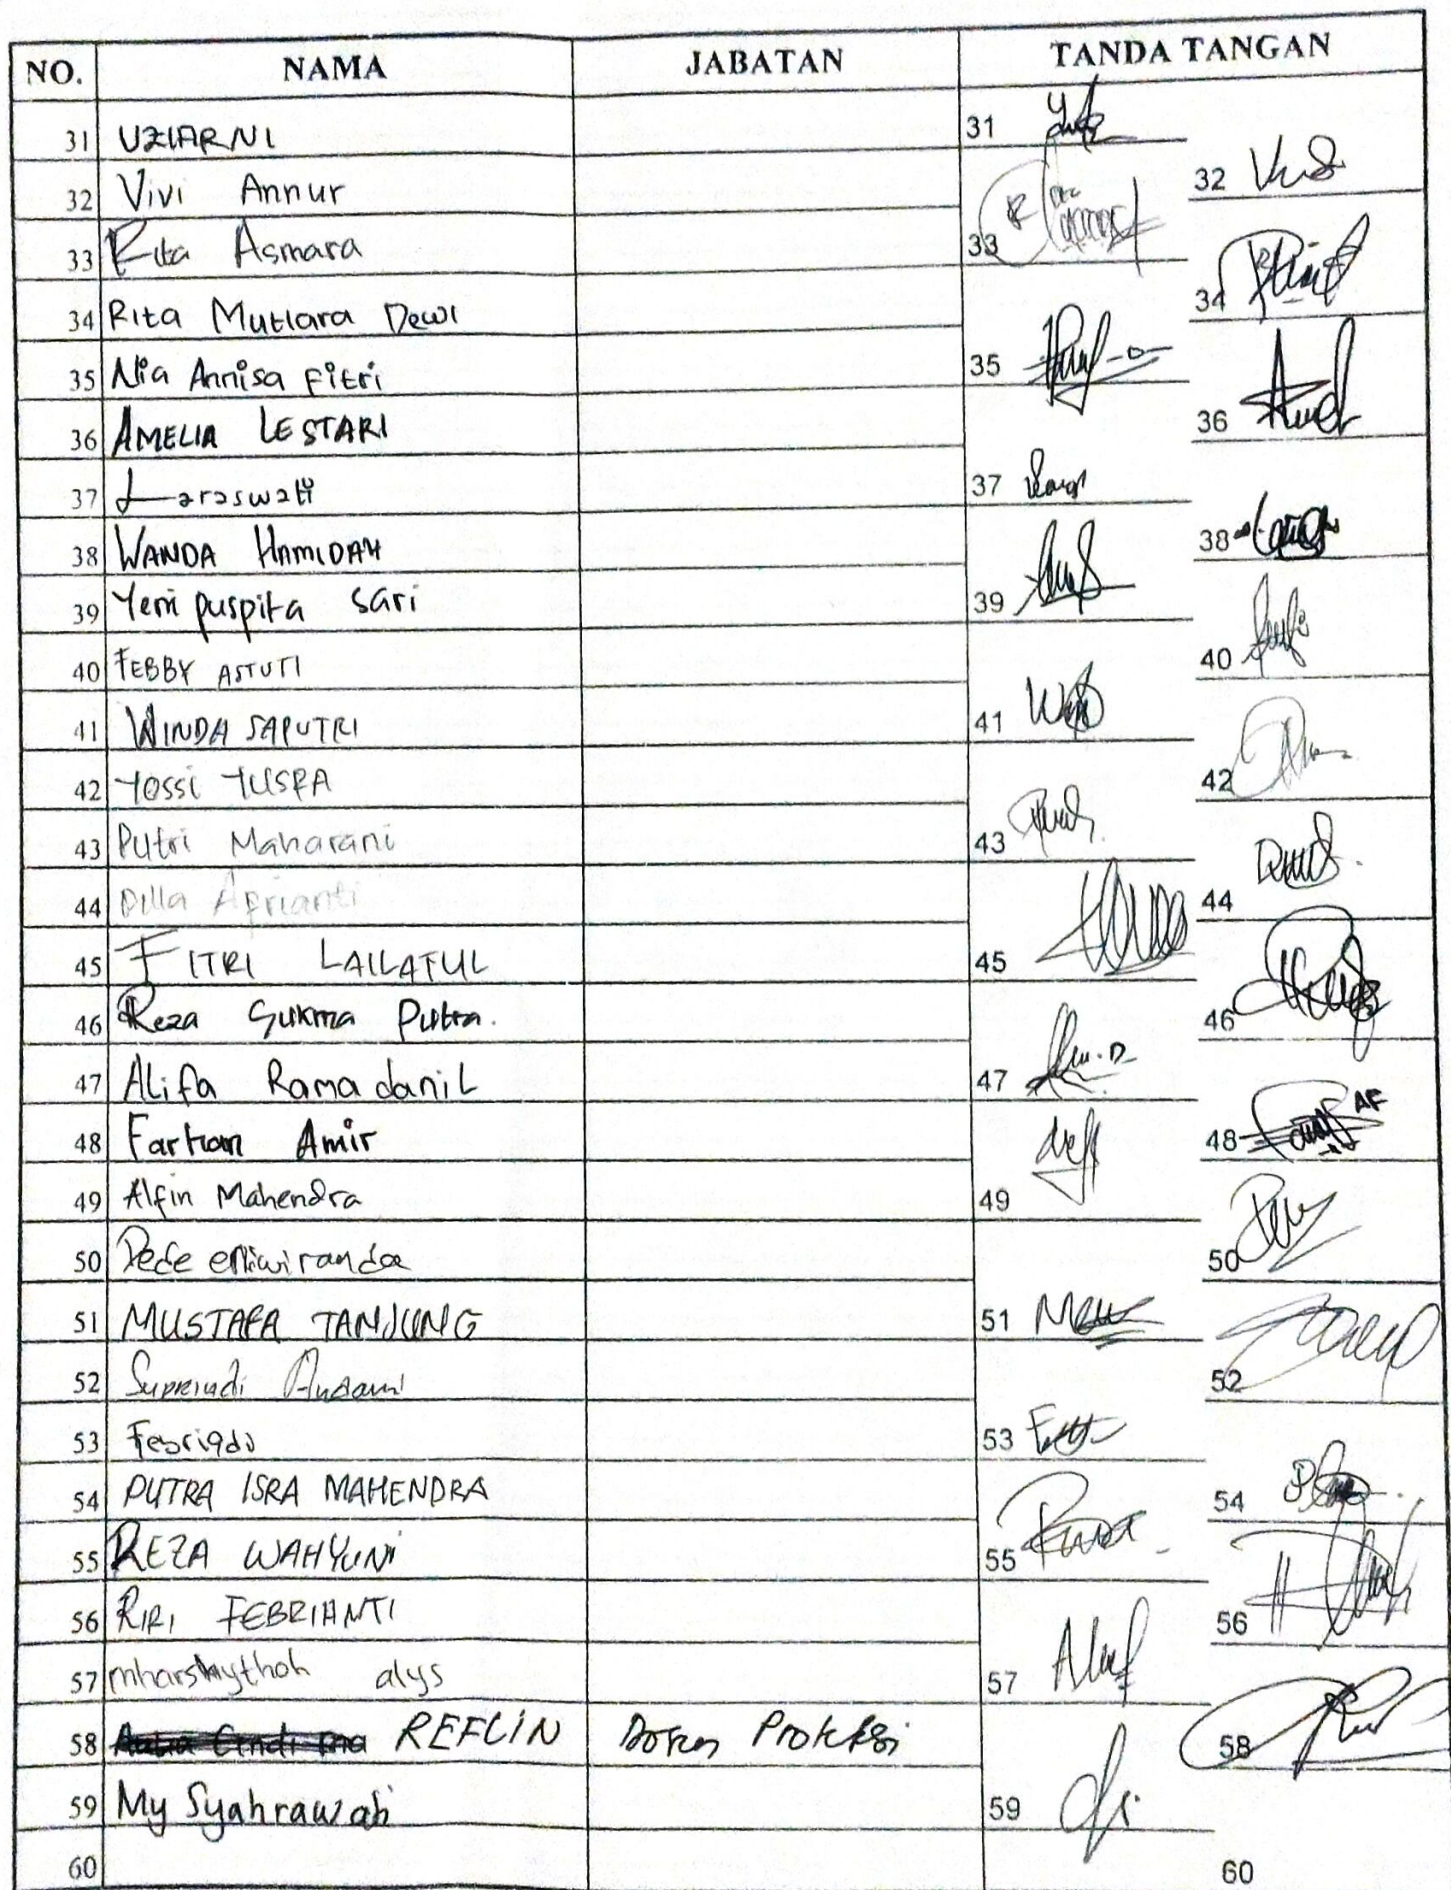 NO. NAMA JABATAN TANDA TANGAN
31 UZIARNI 31
32 Vivi Annur 32
33 Rita Asmara 33
34 Rita Mutiara Dewi 34
35 Nia Annisa Fitri 35
36 AMELIA LESTARI 36
37 Laraswati 37
38 WANDA HAMIDAH 38
39 Yeni puspita sari 39
40 FEBBY ASTUTI 40
41 WINDA SAPUTRI 41
42 YOSSI YUSRA 42
43 Putri Maharani 43
44 Dilla Aprianti 44
45 FITRI LAILATUL 45
46 Reza Sukma Putra. 46
47 Alifa Ramadanil 47
48 Farhan Amir 48 AF
49 Alfin Mahendra 49
50 Dede 50
51 MUSTAFA TANJUNG 51
52 52
53 53
54 PUTRA ISRA MAHENDRA 54
55 REZA WAHYUNI 55
56 RIRI FEBRIANTI 56
57 alys 57
58 REFLIN 58
59 My 59
60 60